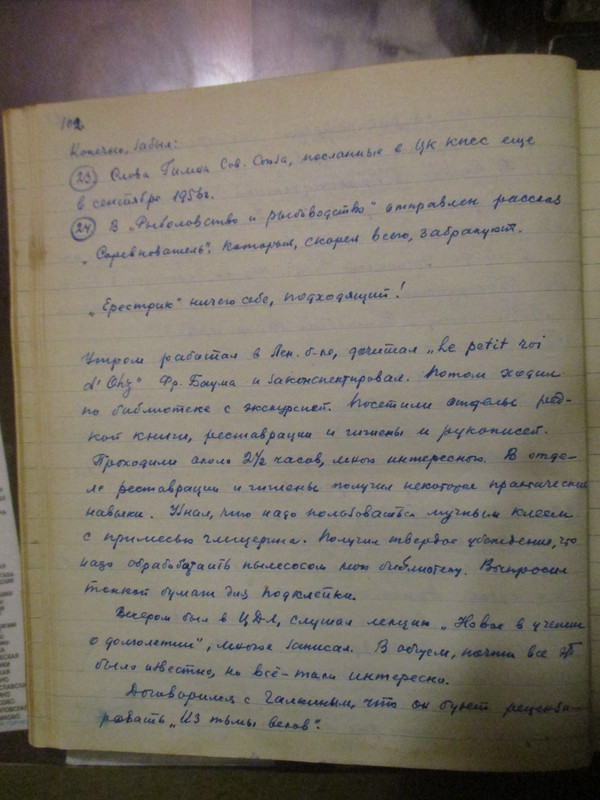 102
Конечно, забыл:
23) Слова Гимна Сов. Союза, посланные в ЦК КПСС еще
в сентябре 1956 г.
24) В „Рыболовство и рыбоводство" отправлен рассказ
„Соревнователь", который, скорей всего, забракуют.
„Ерестрик" ничего себе, подходящий!
Утром работал в Лен. б-ке, дочитал „Le petit roi
d'Ohz" Фр. Баума и законспектировал. Потом ходил
по библиотеке с экскурсией. Посетили отделы ред-
кой книги, реставрации и гигиены и рукописей.
Проходили около 2½ часов, много интересного. В отде-
ле реставрации и гигиены получил некоторые практические
навыки. Узнал, что надо пользоваться мучным клеем
с примесью глицерина. Получил твердое убеждение, что
надо обрабатывать пылесосом мою библиотеку. Выпросил
тонкой бумаги для подклейки.
Вечером был в ЦДЛ, слушал лекцию „Новое в учении
о долголетии", многое записал. В общем, почти всё
было известно, но всё-таки интересно.
Договорился с Галкиным, что он будет рецензи-
ровать „Из тьмы веков".